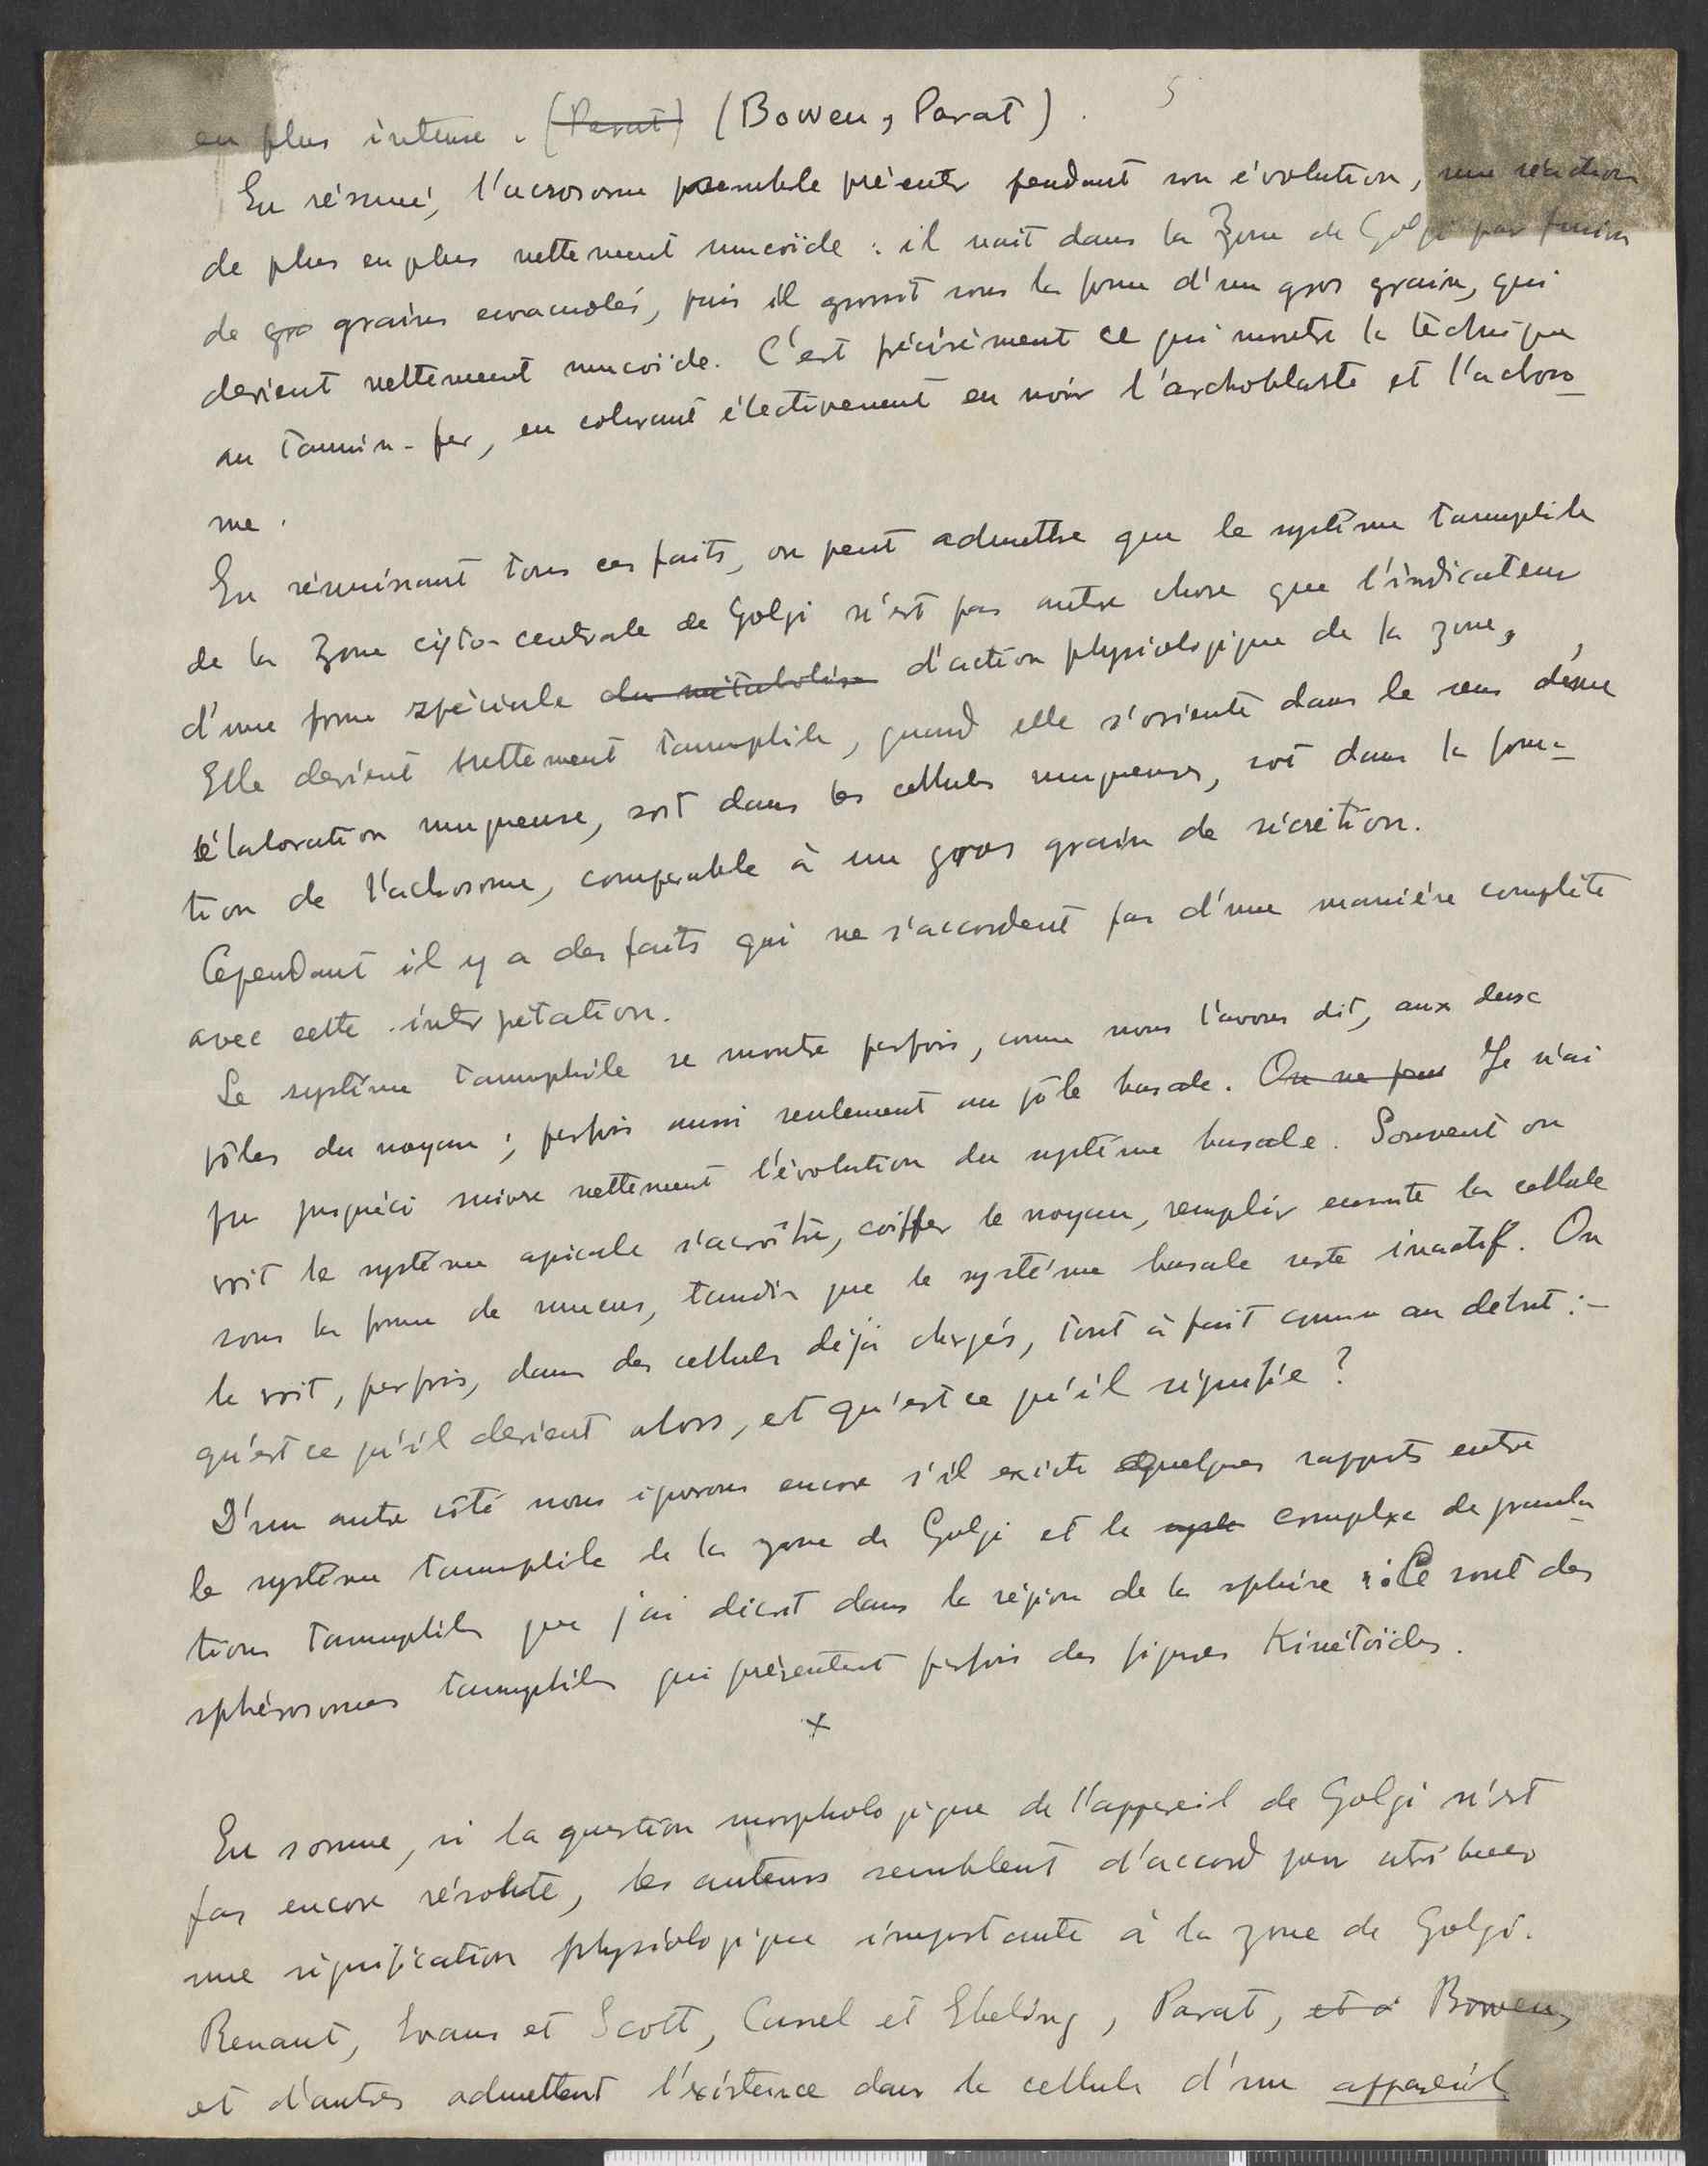 5
en plus intense. (Parat) (Bowen, Parat).
En résumé, l'acrosome semble présenter pendant son évolution, une réaction
de plus en plus nettement mucoïde : il nait dans la Zone de Golgi par fusion
de gro grains envacuolés, puis il grossit sous la forme d'un gros grain, qui
devient nettement mucoïde. C'est précisément ce qui montre la technique
au tannin-fer, en colorant électivement en noir l'archoblaste et l'achoso-
me.
En réunissant tous ces faits, on peut admettre que le système tannophile
de la Zone cyto-centrale de Golgi n'est pas autre chose que l'indicateur
d'une forme spéciale du métabolism d'action physiologique de la zone,
Elle devient nettement tannophile, quand elle s'oriente dans le sens d'une
élaboration muqueuse, soit dans les cellules muqueuses, soit dans la forma-
tion de l'achosome, comparable à un gros grain de sécrétion.
Cependant il y a des faits qui ne s'accordent pas d'une manière complète
avec cette interpétation.
Le système tannophile se montre parfois, comme nous l'avons dit, aux deux
pôles du noyau ; parfois aussi seulement au pôle basale. On ne peut Je n'ai
pu jusqu'ici suivre nettement l'évolution du système basale. Souvent on
voit le système apicale s'acroître, coiffer le noyau, remplir ensuite la cellule
sous la forme de mucus, tandis que le système basale reste inactif. On
le voit, parfois, dans des cellules déjà chargés, tout à fait comme au debut :-
qu'est ce qu'il devient alors, et qu'est ce qu'il signifie ?
D'un autre côté nous ignorons encore s'il existe quelques rapports entre
le système tannophile de la zone de Golgi et le syste complexe de granula-
tions tannophiles que j'ai décrit dans la région de la sphère : Ce sont des
sphérosomes tannophiles qui présentent parfois des figures Kinétoïdes.
x
En somme, si la question morphologique de l'appareil de Golgi n'est
pas encore résolute, les auteurs semblent d'accord pour atribuer
une signification physiologique importante à la zone de Golgi.
Renaut, Evans et Scott, Carrel et Ebeling, Parat, et à Bowen,
et d'autres admettent l'existence dans la cellule d'un appareil